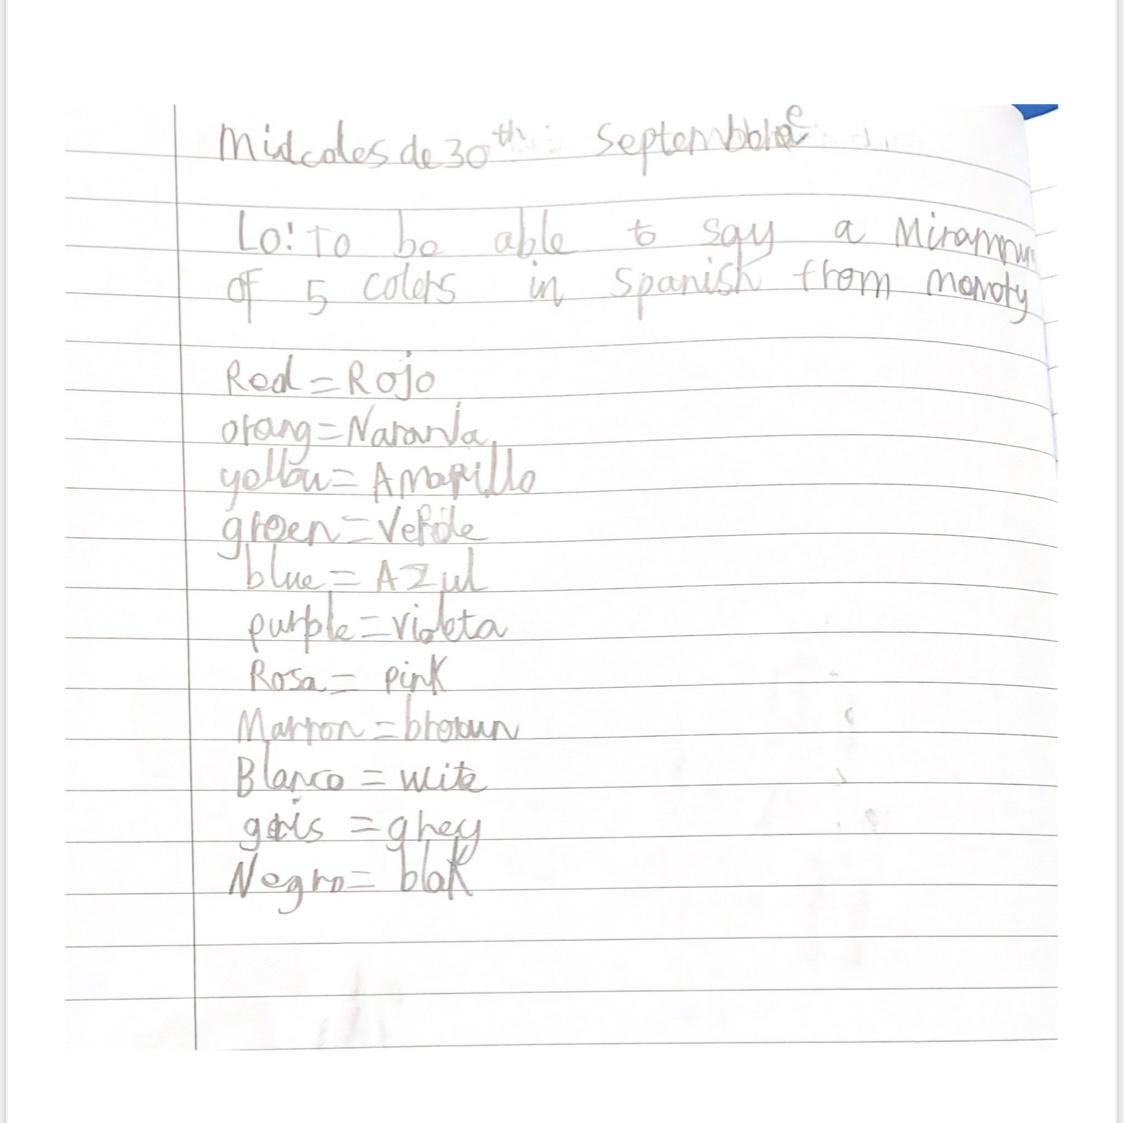 Midcoles de 30th Septembbre
Lo: To be able to say a Miramny
of 5 colers in Spanish from moroty
Red = Rojo
orang = Naranja
yellow = Amarillo
green = Verde
blue = Azul
purple = violeta
Rosa = pink
Marron = brown
Blanco = wite
gris = grey
Negro = blak